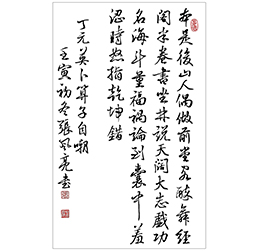 本是後山人偶做前堂客醉舞經
閣半卷書坐井說天闊大志戲功
名海斗量福禍論到囊中羞
澀時怒指乾坤錯
丁元英卜算子自嘲
壬寅初冬張風亮書